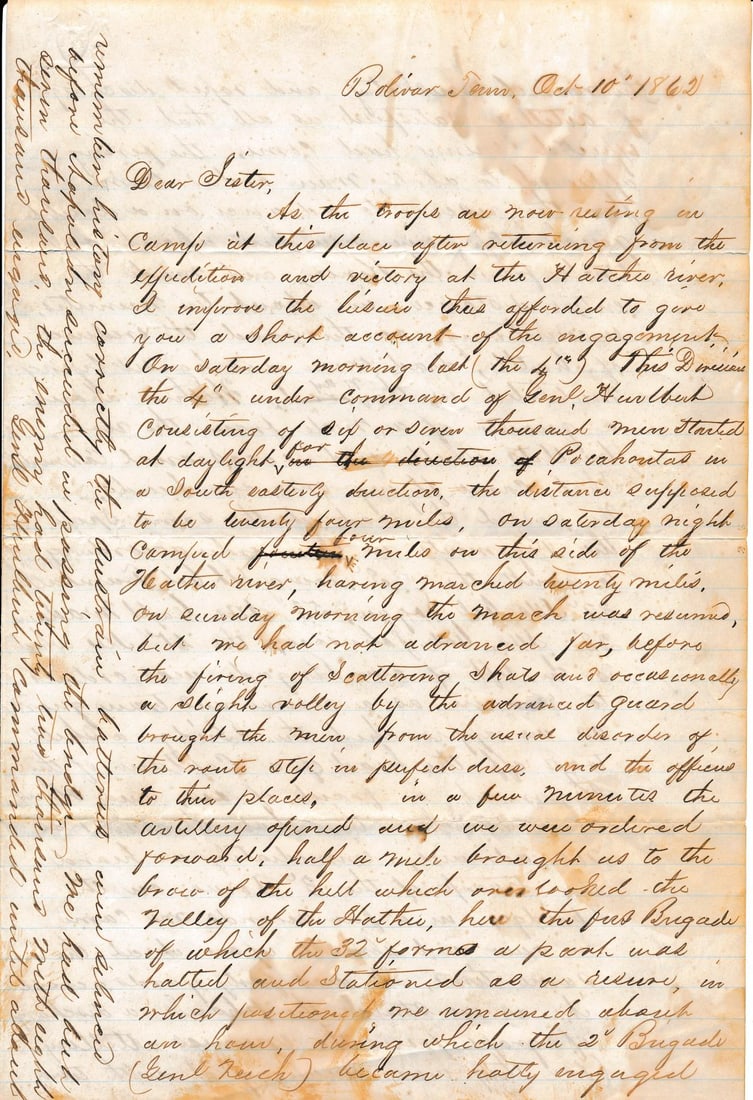 Bolivar Tenn, Oct 10" 1862
Dear Sister,
As the troops are now resting in
Camp at this place after returning from the
Expedition and victory at the Hatchie river,
I improve the leisure thus afforded to give
you a short account of the engagement,
On saturday morning last (the 4th) This Division
the 4" under command of Genl Hurlbert
Consisting of six or seven thousand men started
at daylight, for in the direction of Pocahontas in
a South easterly direction, the distance supposed
to be twenty four miles, on saturday night
Camped fourteen four miles on this side of the
Hatchie river, having marched twenty miles.
on sunday morning the march was resumed,
but we had not advanced far, before
the firing of Scattering Shots and occasionally
a slight volley by the advanced guard
brought the men from the usual disorder of
the route step in perfect dress, and the officers
to their places, in a few minutes the
artillery opened and we were ordered
forward, half a mile brought us to the
brow of the hill which overlooked the
Valley of the Hathie, here the first Brigade
of which the 32" forms a part was
halted and Stationed as a reserve, in
which position we remained about
an hour, during which the 2" Brigade
(Genl Veich) became hotly engaged
remember history correctly the Austrain batteries were silenced
before Napoleon succeeded in passing the bridge We had but
seven thousand the enemy had twenty two thousand with eight
thousand engaged. Genl Hurlburt commanded until about